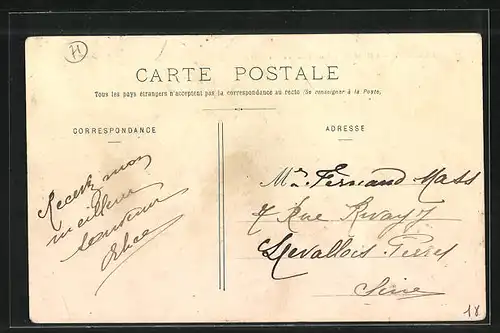 H
CARTE POSTALE
Tous les pays étrangers n'acceptent pas la correspondance au recto (Se renseigner à la Poste)
CORRESPONDANCE
ADRESSE
Recevez mon
meilleur
souvenir
Mr. Fernand Mass
7 Rue
Levallois Perret
Seine
18